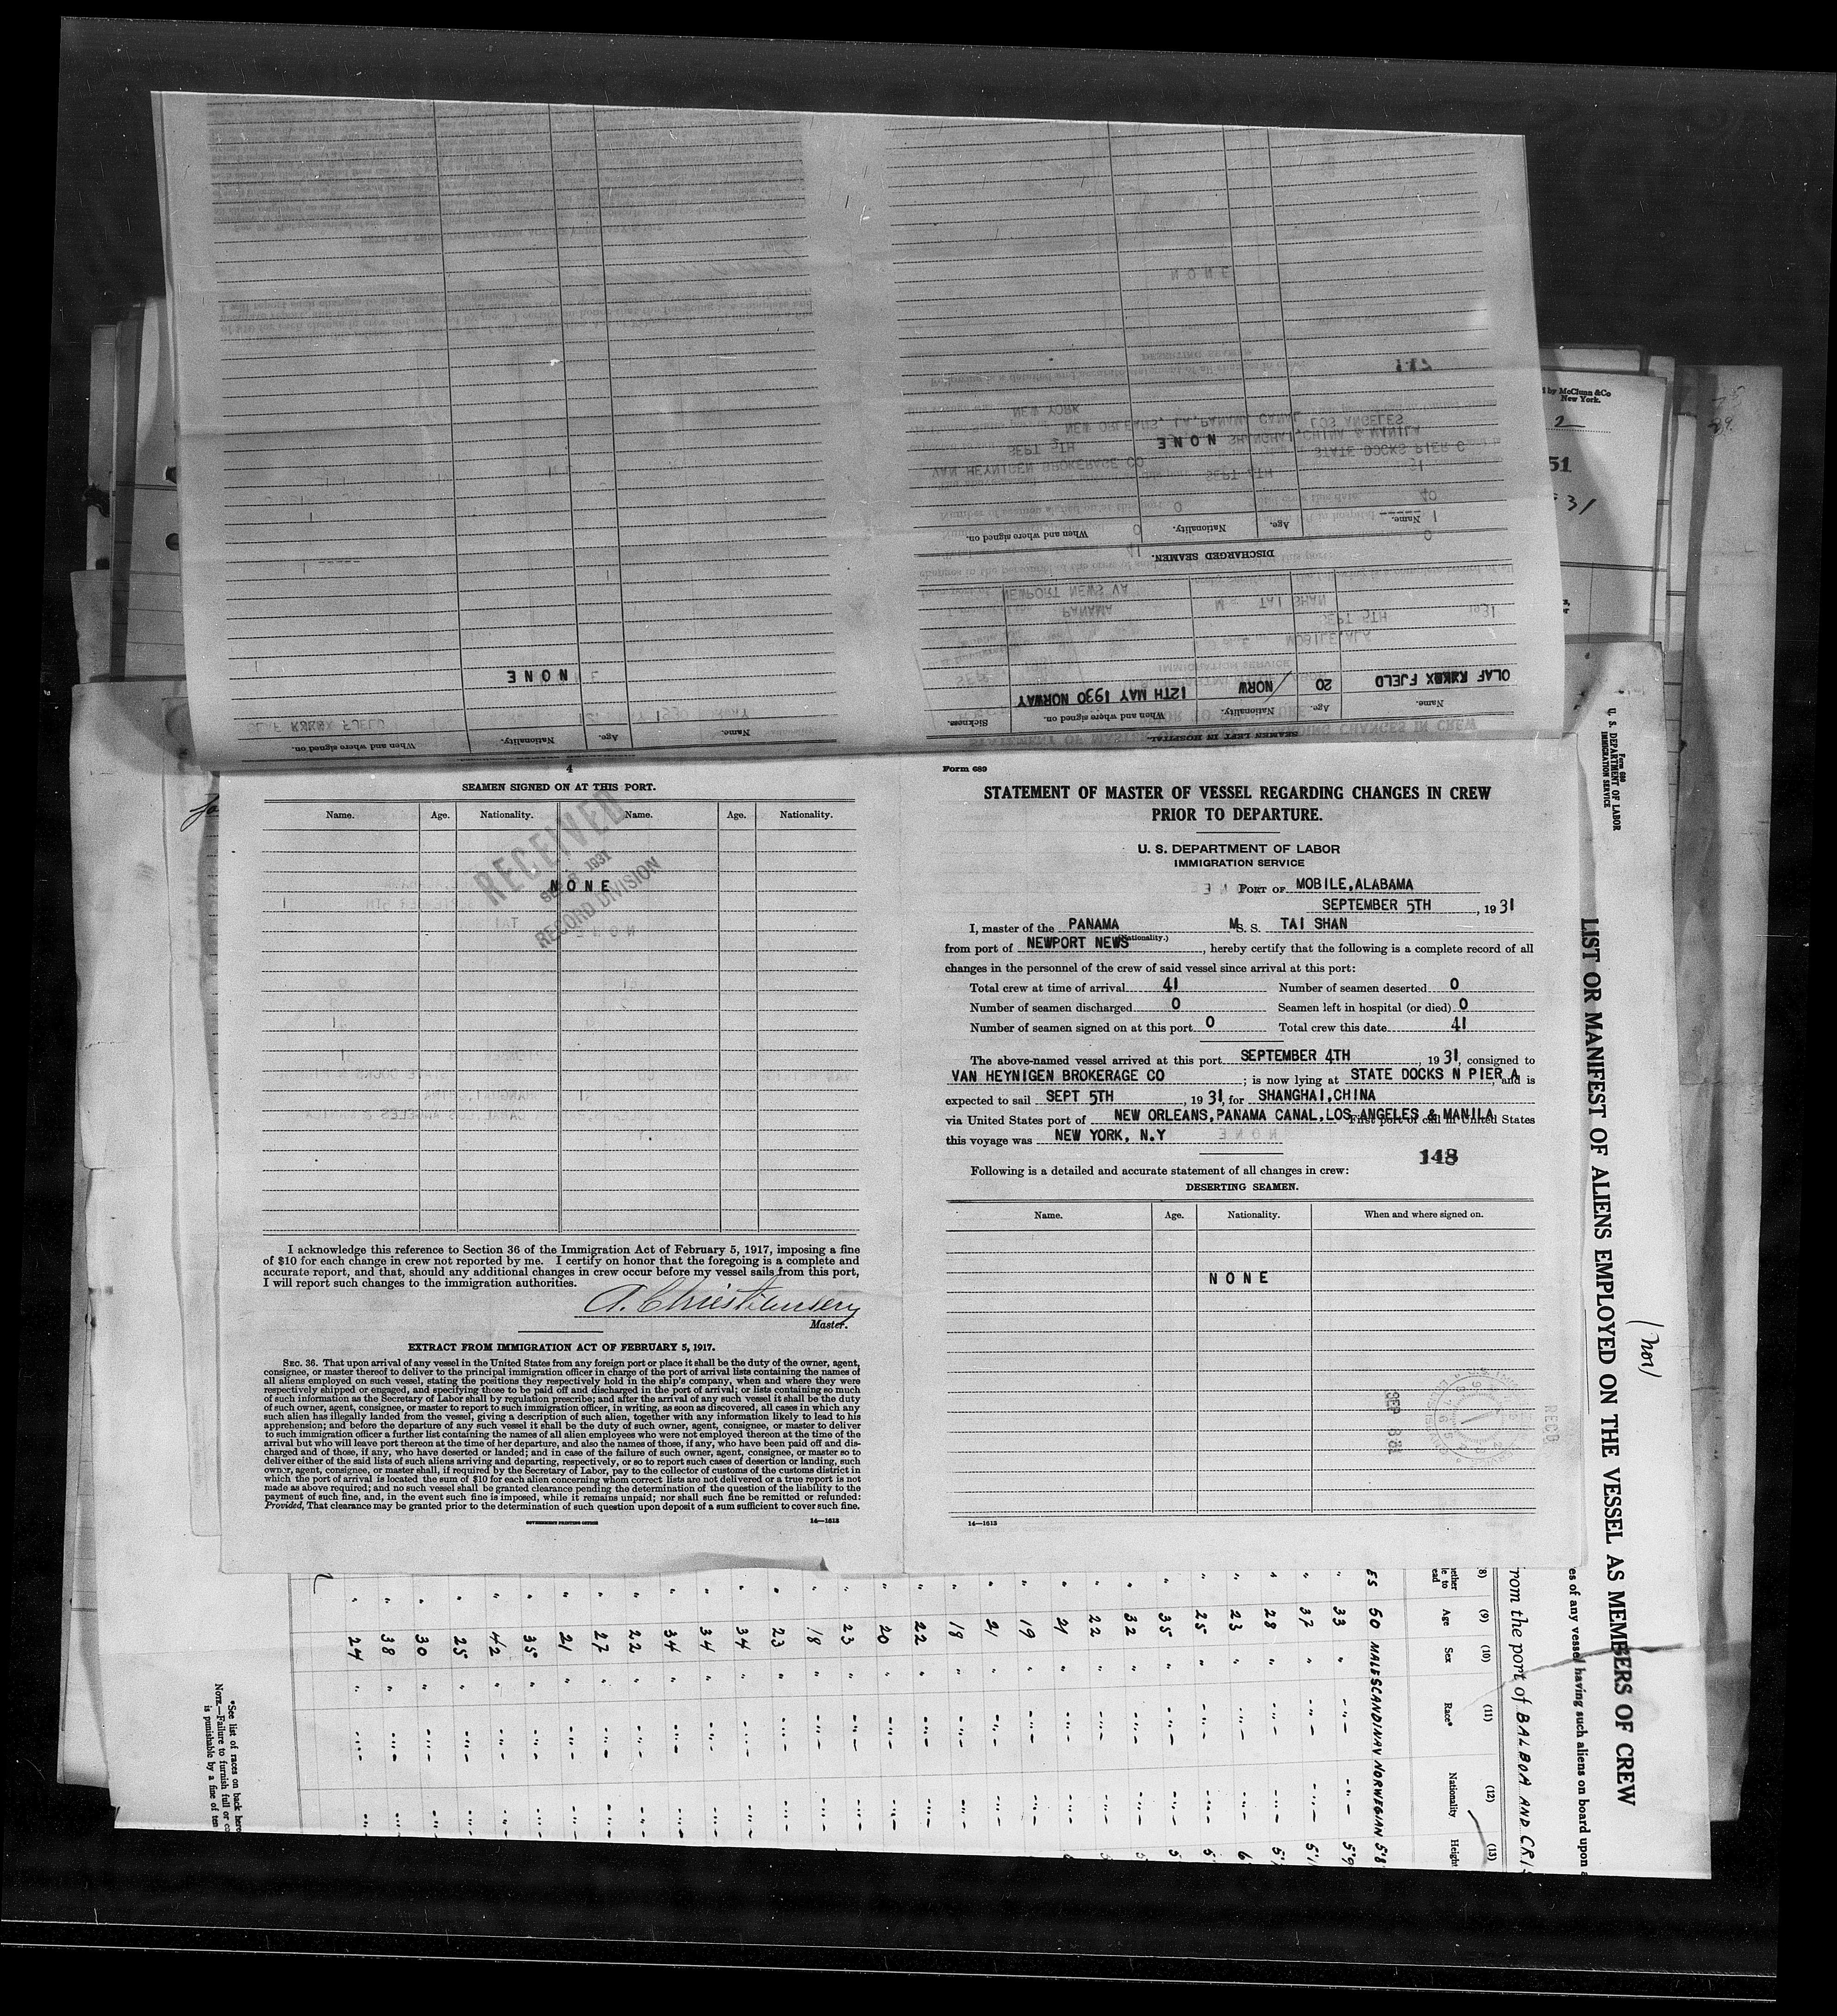 4
SEAMEN SIGNED ON AT THIS PORT.
Name. Age. Nationality. Name. Age. Nationality.
RECEIVED
1931
RECORD DIVISION
NONE
I acknowledge this reference to Section 36 of the Immigration Act of February 5, 1917, imposing a fine
of $10 for each change in crew not reported by me. I certify on honor that the foregoing is a complete and
accurate report, and that, should any additional changes in crew occur before my vessel sails from this port,
I will report such changes to the immigration authorities.
A. Christensen
Master.
EXTRACT FROM IMMIGRATION ACT OF FEBRUARY 5, 1917.
SEC. 36. That upon arrival of any vessel in the United States from any foreign port or place it shall be the duty of the owner, agent,
consignee, or master thereof to deliver to the principal immigration officer in charge of the port of arrival lists containing the names of
all aliens employed on such vessel, stating the positions they respectively hold in the ship's company, when and where they were
respectively shipped or engaged, and specifying those to be paid off and discharged in the port of arrival; or lists containing so much
of such information as the Secretary of Labor shall by regulation prescribe; and after the arrival of any such vessel it shall be the duty
of such owner, agent, consignee, or master to report to such immigration officer, in writing, as soon as discovered, all cases in which any
such alien has illegally landed from the vessel, giving a description of such alien, together with any information likely to lead to his
apprehension; and before the departure of any such vessel it shall be the duty of such owner, agent, consignee, or master to deliver
to such immigration officer a further list containing the names of all alien employees who were not employed thereon at the time of the
arrival but who will leave port thereon at the time of her departure, and also the names of those, if any, who have been paid off and dis-
charged and of those, if any, who have deserted or landed; and in case of the failure of such owner, agent, consignee, or master so to
deliver either of the said lists of such aliens arriving and departing, respectively, or so to report such cases of desertion or landing, such
owner, agent, consignee, or master shall, if required by the Secretary of Labor, pay to the collector of customs of the customs district in
which the port of arrival is located the sum of $10 for each alien concerning whom correct lists are not delivered or a true report is not
made as above required; and no such vessel shall be granted clearance pending the determination of the question of the liability to the
payment of such fine, and, in the event such fine is imposed, while it remains unpaid; nor shall such fine be remitted or refunded:
Provided, That clearance may be granted prior to the determination of such question upon deposit of a sum sufficient to cover such fine.
GOVERNMENT PRINTING OFFICE 14—1613
Form 689
STATEMENT OF MASTER OF VESSEL REGARDING CHANGES IN CREW
PRIOR TO DEPARTURE.
U. S. DEPARTMENT OF LABOR
IMMIGRATION SERVICE
PORT OF MOBILE, ALABAMA
SEPTEMBER 5TH, 1931
I, master of the PANAMA M S. S. TAI SHAN
(Nationality.)
from port of NEWPORT NEWS, hereby certify that the following is a complete record of all
changes in the personnel of the crew of said vessel since arrival at this port:
Total crew at time of arrival 41 Number of seamen deserted 0
Number of seamen discharged 0 Seamen left in hospital (or died) 0
Number of seamen signed on at this port 0 Total crew this date 41
The above-named vessel arrived at this port SEPTEMBER 4TH, 1931, consigned to
VAN HEYNIGEN BROKERAGE CO; is now lying at STATE DOCKS N PIER A, and is
expected to sail SEPT 5TH, 1931, for SHANGHAI, CHINA
via United States port of NEW ORLEANS, PANAMA CANAL, LOS ANGELES & MANILA First port of call in United States
this voyage was NEW YORK, N.Y
148
Following is a detailed and accurate statement of all changes in crew:
DESERTING SEAMEN.
Name. Age. Nationality. When and where signed on.
NONE
14—1613
SEAMEN LEFT IN HOSPITAL.
Name. Age. Nationality. When and where signed on. Sickness.
OLAF FJELD 20 NORW 12TH MAY 1930 NORWAY
DISCHARGED SEAMEN.
Name. Age. Nationality. When and where signed on.
NONE
Name. Age. Nationality. When and where signed on.
NONE
by McClunn &Co
New York.
2
51
31
Form 689
U. S. DEPARTMENT OF LABOR
IMMIGRATION SERVICE
LIST OR MANIFEST OF ALIENS EMPLOYED ON THE VESSEL AS MEMBERS OF CREW
(Nor)
es of any vessel having such aliens on board upon
rom the port of BALBOA AND CRIS
(8) (9) (10) (11) (12) (13)
Age Sex Race* Nationality Height
ES 50 MALE SCANDINAV NORWEGIAN 5'8
" 33 " -"- -"- 5'9
" 37 " -"- -"- 5'1
" 28 " -"- -"- 5'
" 23 " -"- -"- 6
" 25 " -"- -"- 5'
" 35 " -"- -"- 5
" 32 " -"- -"-
" 22 " -"- -"-
" 21 " -"- -"-
" 19 " -"- -"-
" 21 " -"- -"-
" 18 " -"- -"-
" 22 " -"- -"-
" 20 " -"- -"-
" 23 " -"- -"-
" 18 " -"- -"-
" 23 " -"- -"-
" 34 " -"- -"-
" 34 " -"- -"-
" 34 " -"- -"-
" 22 " -"- -"-
" 27 " -"- -"-
" 21 " -"- -"-
" 35 " -"- -"-
" 42 " -"- -"-
" 25 " -"- -"-
" 30 " -"- -"-
" 38 " -"- -"-
" 24 " -"- -"-
*See list of races on back here
NOTE.—Failure to furnish full or co
is punishable by a fine of ten